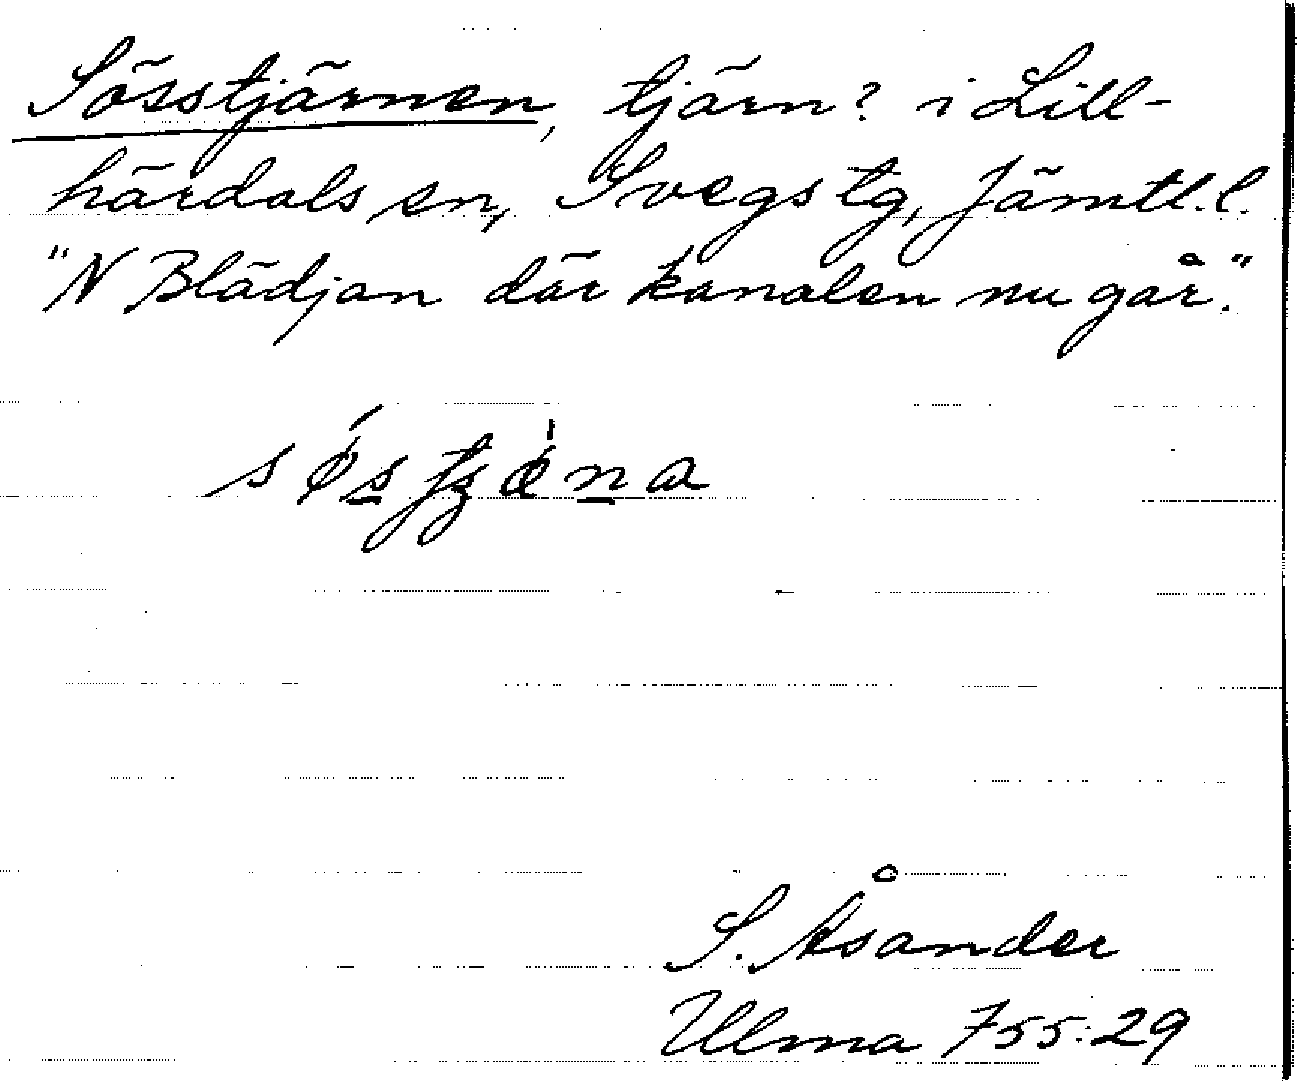 Sösstjärnen, tjärn? i Lill-
härdals sn, Svegs tg, Jämtl.l.
"N Blädjan där kanalen nu går."
S. Åsander
Ulma 755:29